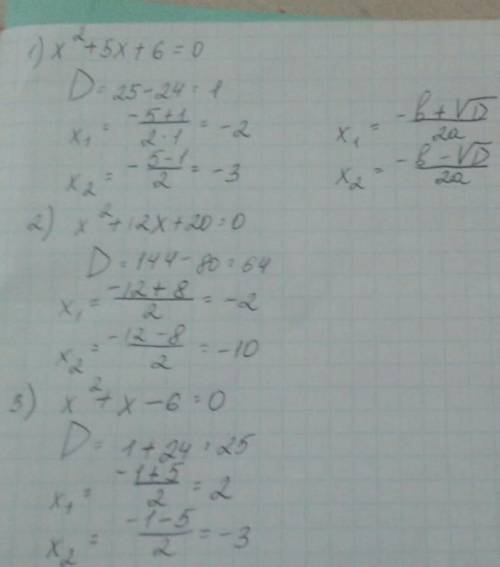 1) x²+5x+6=0
D=25-24=1
x₁ = (-5+1)/(2·1) = -2
x₂ = (-5-1)/2 = -3
x₁ = (-b+√D)/(2a)
x₂ = (-b-√D)/(2a)
2) x²+12x+20=0
D=144-80=64
x₁ = (-12+8)/2 = -2
x₂ = (-12-8)/2 = -10
3) x²+x-6=0
D= 1+24=25
x₁ = (-1+5)/2 = 2
x₂ = (-1-5)/2 = -3